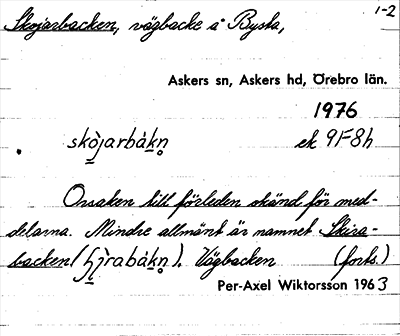 1-2
Skojarbacken, vägbacke å Bysta,
Askers sn, Askers hd, Örebro län.
1976
skòjarbàkn̥ ek 9F8h
Orsaken till förleden okänd för med-
delarna. Mindre allmänt är namnet Skira-
backen (ʃìrabàkn̥). Vägbacken (forts.)
Per-Axel Wiktorsson 1963